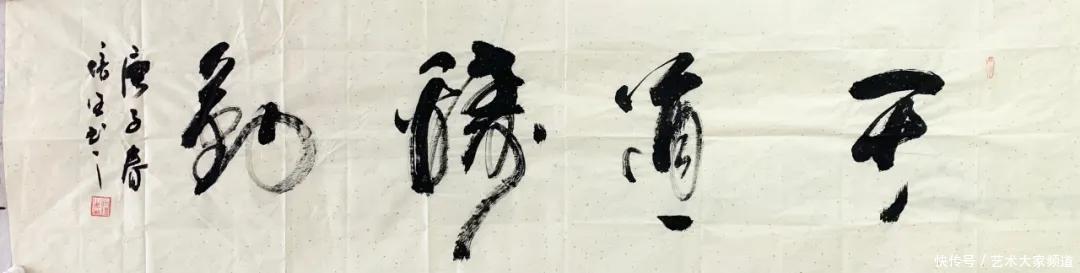 天道酬勤
庚子春
书
快传号 / 艺术大家频道